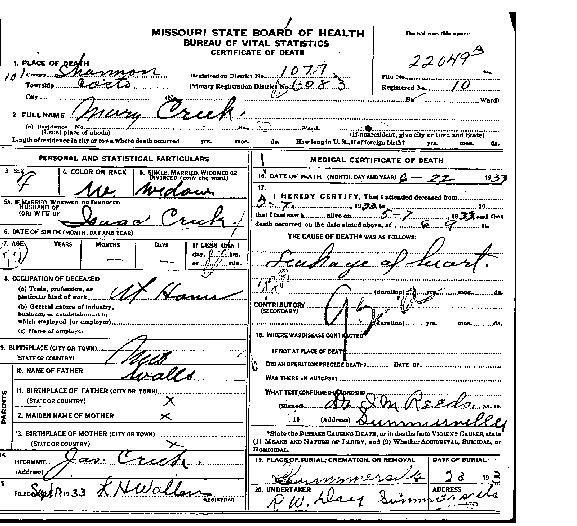 MISSOURI STATE BOARD OF HEALTH
BUREAU OF VITAL STATISTICS
CERTIFICATE OF DEATH
1. PLACE OF DEATH
County Shannon
Registration District No. 1077
File No. 22049
Township
Primary Registration District No. 6083
Registered No. 10
City
Ward)
2 FULL NAME Mary Crick
(a) Residence. No.
(Usual place of abode)
(If nonresident, give city or town and state)
Length of residence in city or town where death occurred yrs. mos. ds. How long in U.S., if of foreign birth? yrs. mos. ds.
PERSONAL AND STATISTICAL PARTICULARS
MEDICAL CERTIFICATE OF DEATH
3. SEX
4. COLOR OR RACE
5. SINGLE, MARRIED, WIDOWED OR DIVORCED (write the word)
W Widow
16. DATE OF DEATH (MONTH, DAY AND YEAR) 6-22 1933
17.
I HEREBY CERTIFY, That I attended deceased from
5A. IF MARRIED, WIDOWED, OR DIVORCED
HUSBAND OF
(OR) WIFE OF Isaac Crick
that I last saw h alive on 5-7 1933 and that
death occurred on the date stated above, at
6. DATE OF BIRTH (MONTH, DAY AND YEAR)
THE CAUSE OF DEATH WAS AS FOLLOWS:
7. AGE YEARS MONTHS DAYS If LESS than 1
day, hrs.
or min.
Leakage of heart.
8. OCCUPATION OF DECEASED
(a) Trade, profession, or
particular kind of work At Home
(duration) yrs. mos. ds.
(b) General nature of industry,
business or establishment in
which employed (or employer)
CONTRIBUTORY
(SECONDARY)
(c) Name of employer
(duration) yrs. mos. ds.
18. WHERE WAS DISEASE CONTRACTED
9. BIRTHPLACE (CITY OR TOWN)
(STATE OR COUNTRY)
IF NOT AT PLACE OF DEATH
DID AN OPERATION PRECEDE DEATH? DATE OF
10. NAME OF FATHER Walls
WAS THERE AN AUTOPSY
PARENTS
11. BIRTHPLACE OF FATHER (CITY OR TOWN)
(STATE OR COUNTRY) X
WHAT TEST CONFIRMED DIAGNOSIS
(Signed) Reeds
12. MAIDEN NAME OF MOTHER X
19 (Address) Summersville
13. BIRTHPLACE OF MOTHER (CITY OR TOWN)
(STATE OR COUNTRY) X
*State the DISEASE CAUSING DEATH, or in deaths from VIOLENT CAUSES, state
(1) MEANS AND NATURE OF INJURY, and (2) Whether ACCIDENTAL, SUICIDAL, or
HOMICIDAL.
14.
INFORMANT Jas. Crick
(Address)
19. PLACE OF BURIAL, CREMATION, OR REMOVAL
DATE OF BURIAL
Summersville 23
15. FILED Sept 33
REGISTRAR
20. UNDERTAKER
R W. Summersville